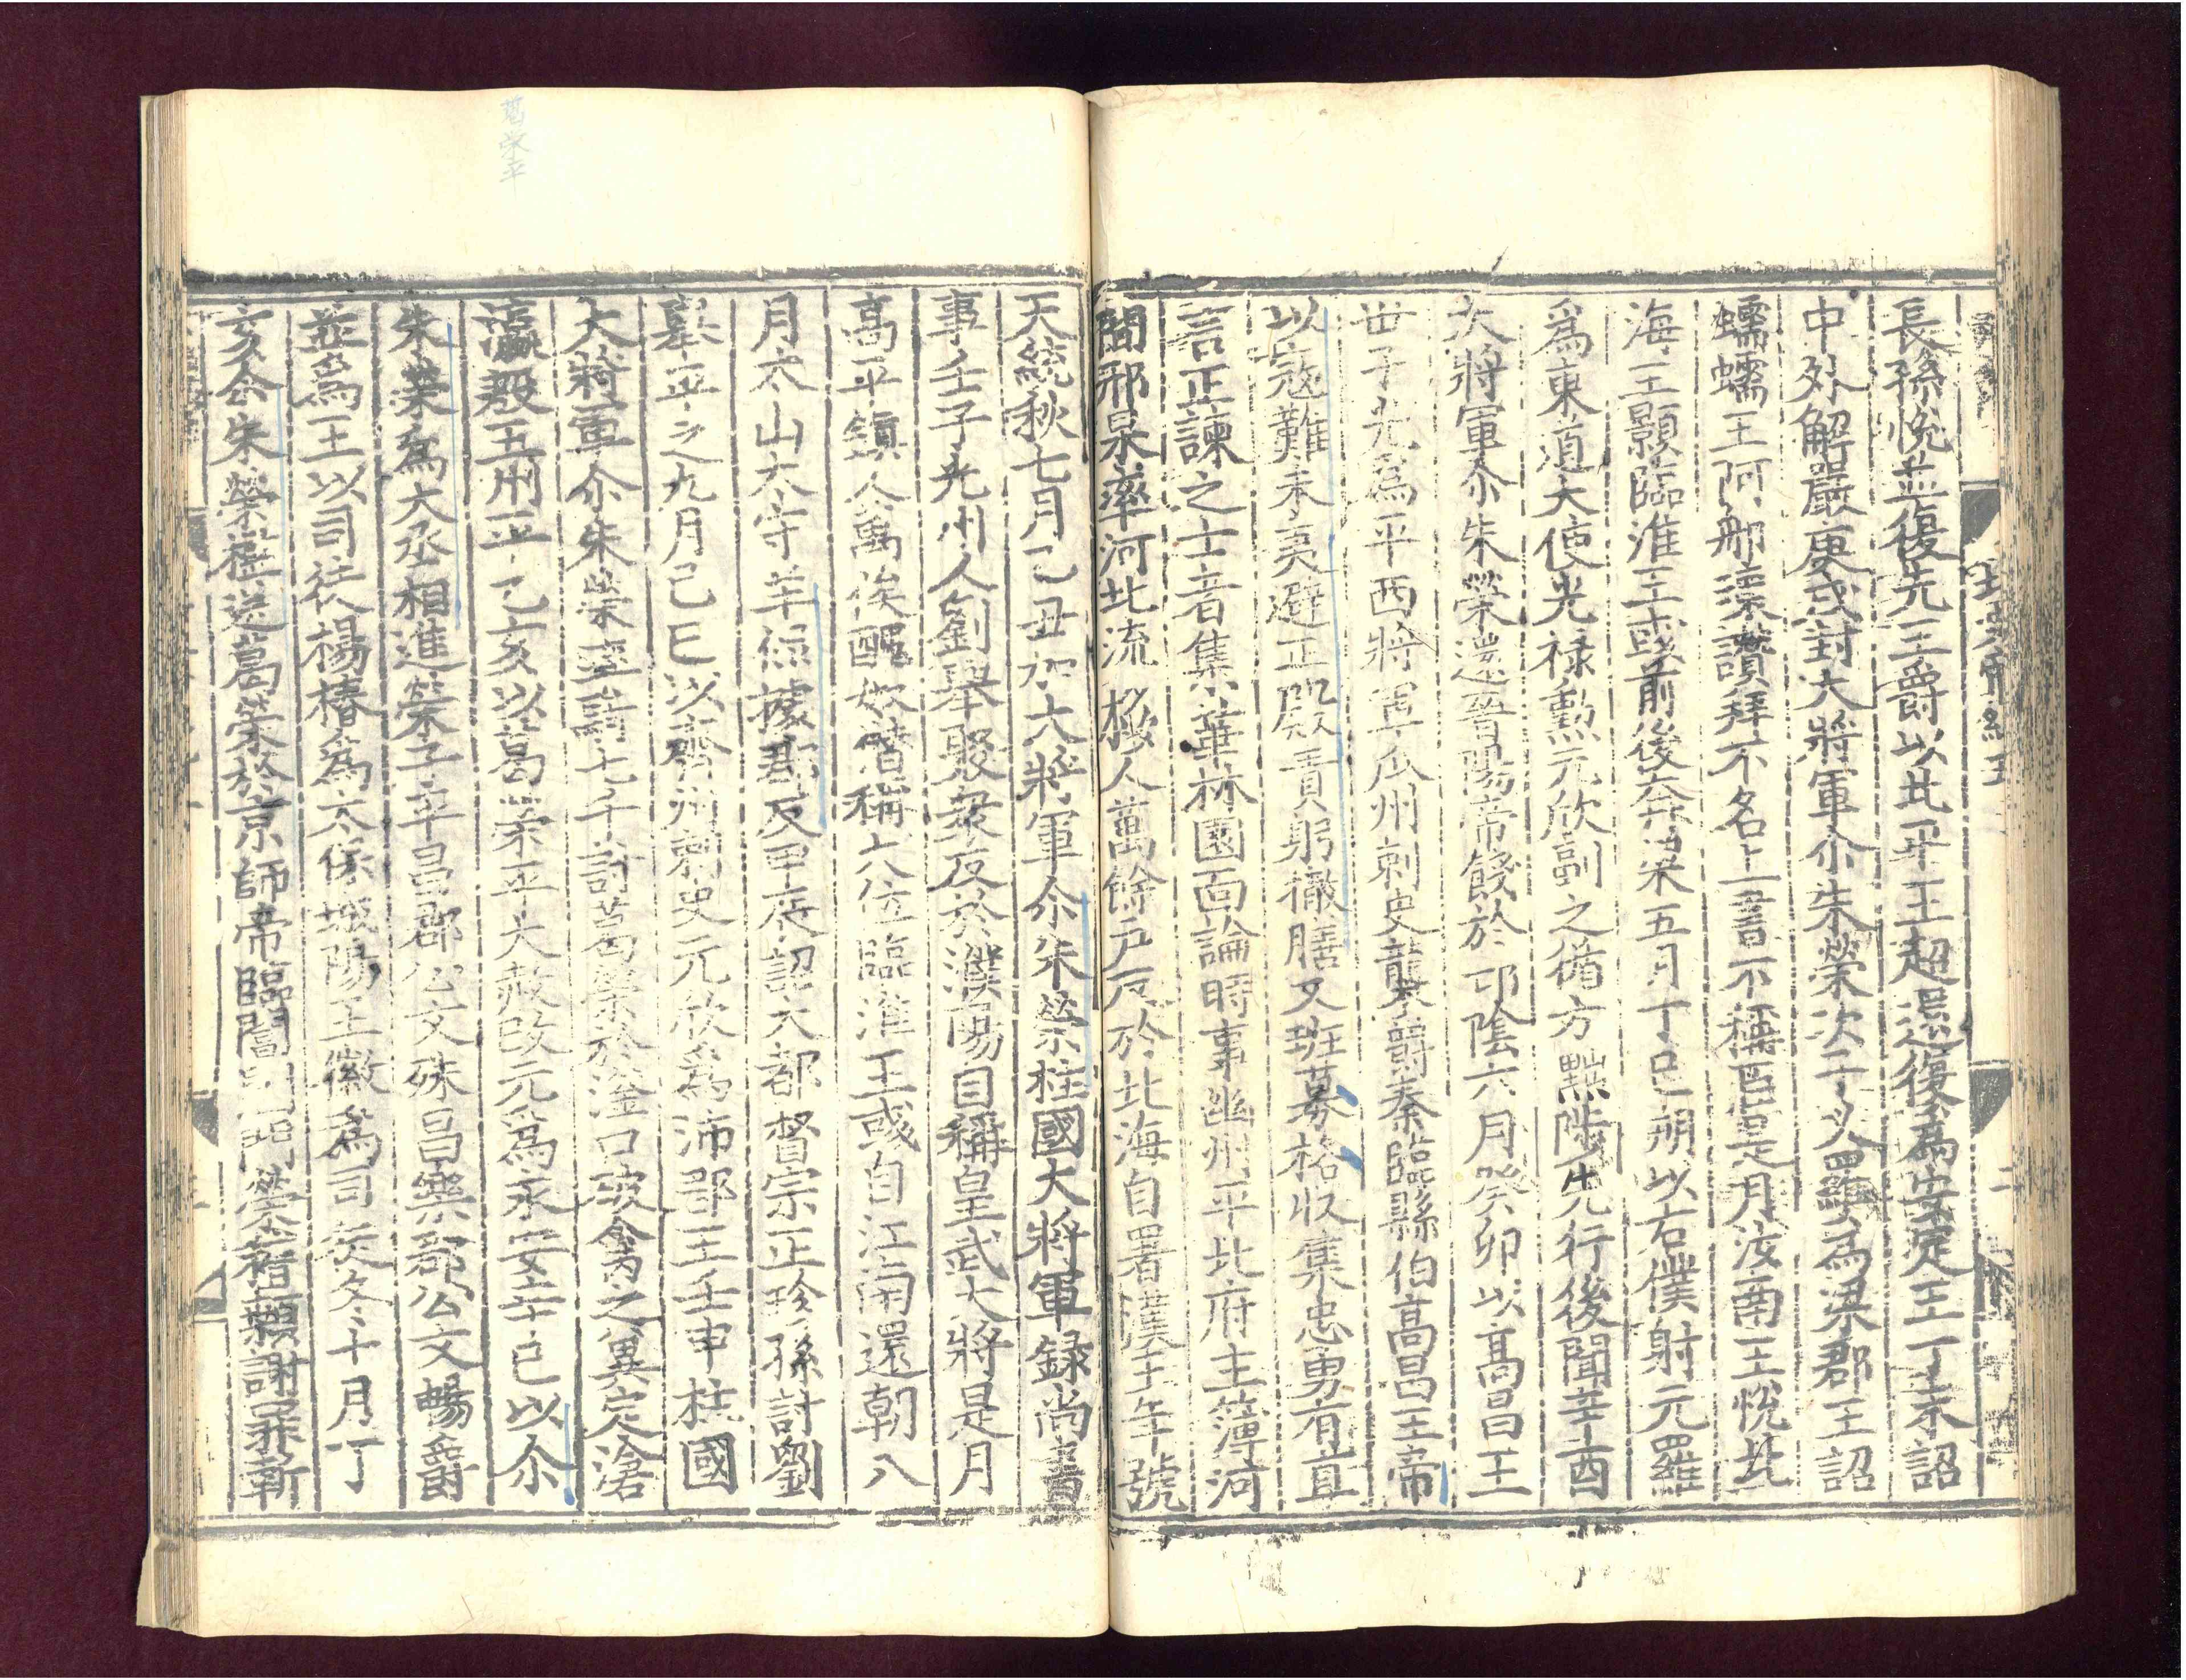 長孫悅並復先王爵以北平王超還復爲安定王丁未詔
中外解嚴庚戌封大將軍尒朱榮次子义羅爲梁郡王詔
蠕蠕王阿那瓌讚拜不名上書不稱臣是月汝南王悅北
海王顥臨淮王彧前後奔梁五月丁巳朔以右僕射元羅
爲東道大使光祿勳元欣副之循方黜陟先行後聞辛酉
大將軍尒朱榮還晉陽帝餞於邙陰六月癸卯以高昌王
世子光爲平西將軍瓜州刺史襲爵泰臨縣伯高昌王帝
以寇難未夷避正殿責躬撤膳又班募格收集忠勇有直
言正諫之士者集華林園面論時事幽州平北府主簿河
間邢杲率河北流移人萬餘戶反於北海自署漢王年號
天統秋七月乙丑加大將軍尒朱榮柱國大將軍錄尚書
事壬子光州人劉舉聚衆反於濮陽自稱皇武大將是月
高平鎮人万俟醜奴僭稱大位臨淮王彧自江南還朝八
月太山太守羊侃據郡反甲辰詔大都督宗正珍孫討劉
舉平之九月己巳以齊州刺史元欣爲沛郡王壬申柱國
大將軍尒朱榮率騎七千討葛榮於滏口破禽之冀定滄
瀛殷五州平乙亥以葛榮平大赦改元爲永安辛巳以尒
朱榮爲大丞相進榮子平昌郡公文殊昌樂郡公文暢爵
並爲王以司徒楊椿爲太保城陽王徽爲司徒冬十月丁
亥尒朱榮檻送葛榮於京師帝臨閶闔門榮稽顙謝罪斬
葛榮平